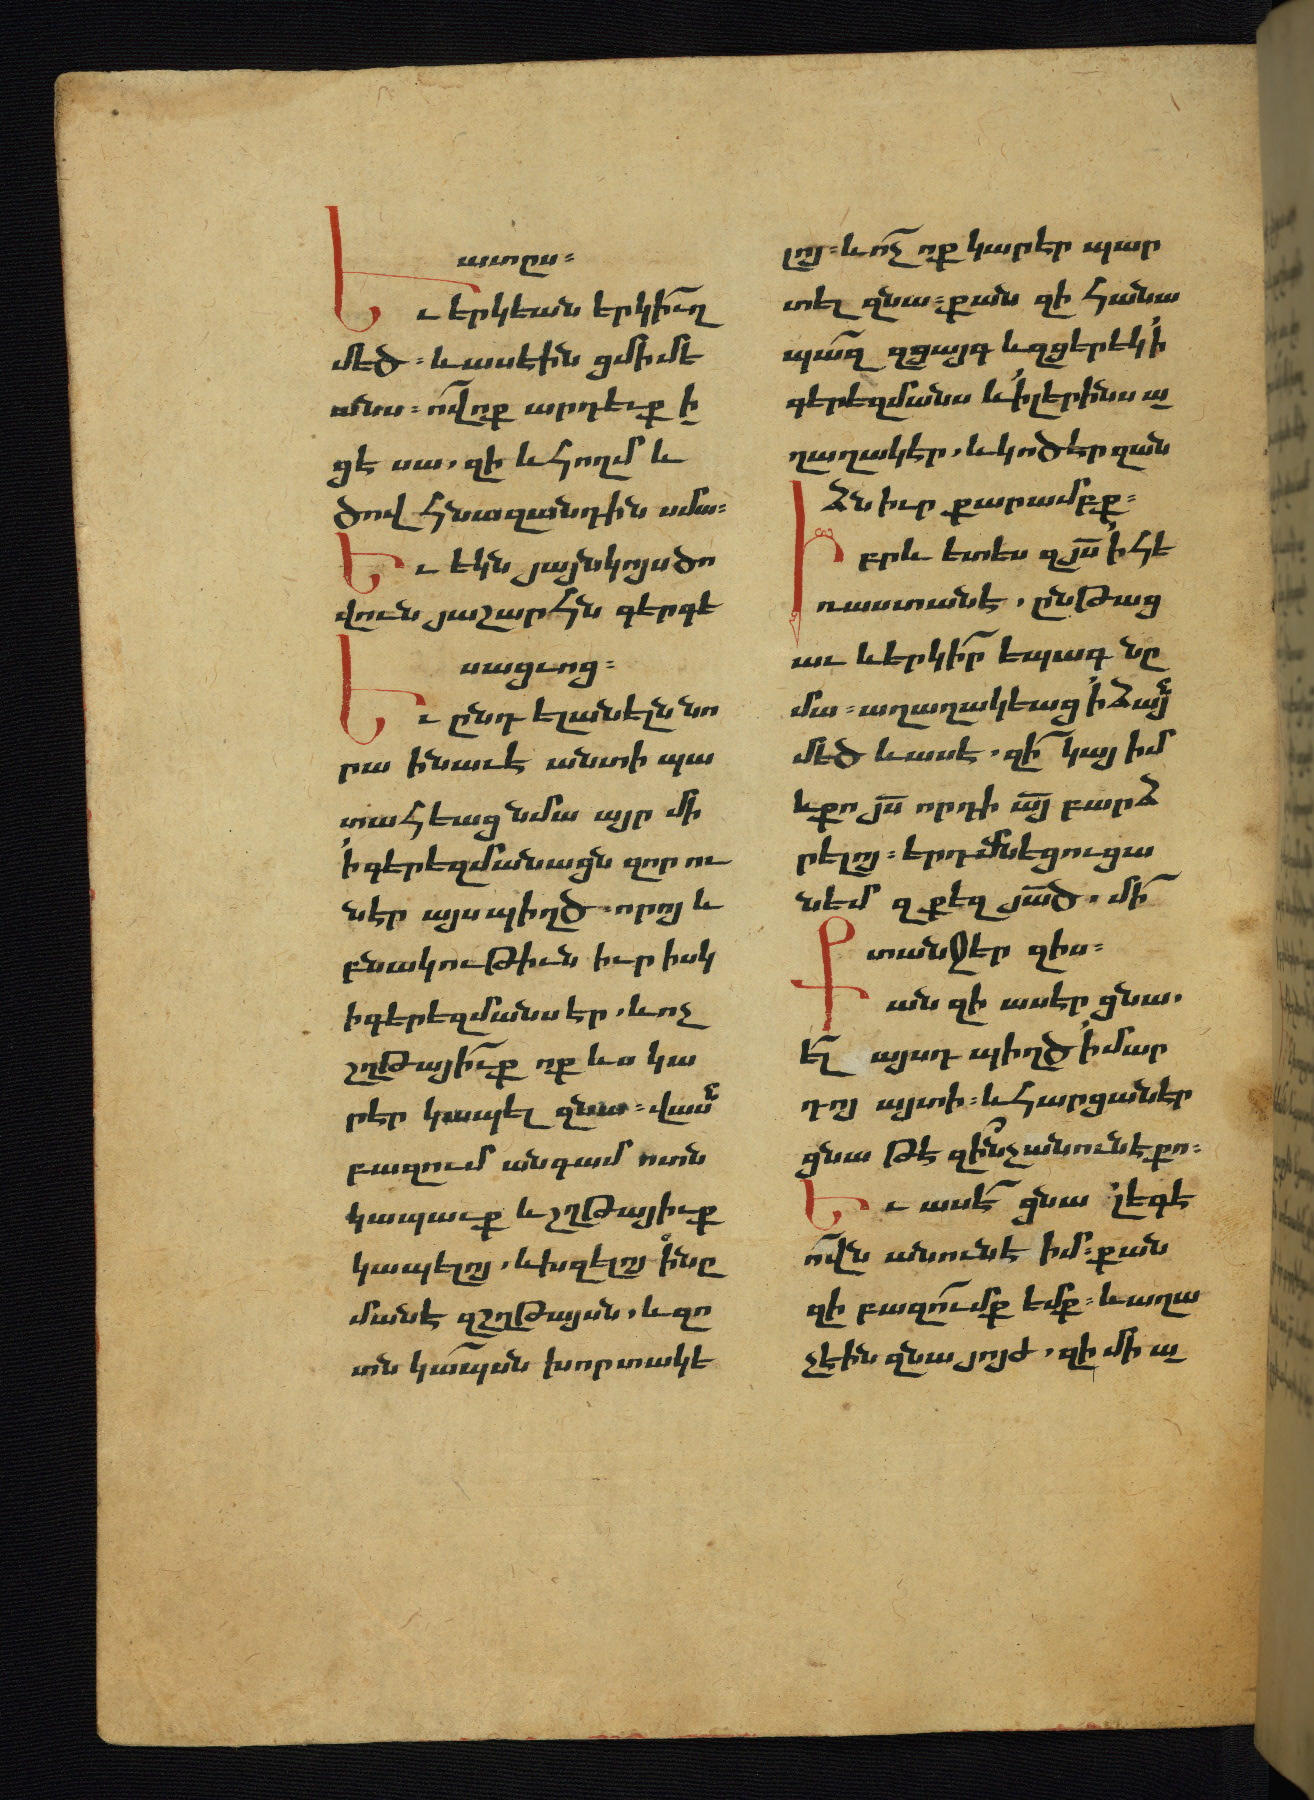 ատըս։
Եւ երկեան երկիւղ
մեծ։ և ասէին ցմիմե
անս։ ո՞վ ոք արդեւք ի
ցէ սա, զի և հողմ և
ծով հնազանդին սմա։
Եւ եկն յայնկոյս ծո
վուն յաշարհն գերգե
սացւոց։
Եւ ընդ ելանելն նո
րա ի նաւէ անտի պա
տահեաց նմա այր մի
ի գերեզմանացն զոր ու
նէր այս պիղծ. որոյ և
բնակութիւն իւր իսկ
ի գերեզմանս էր, և ոչ
շղթայիւք ոք ևս կա
րէր կապել զնա։ վասն
բազում անգամ ոտն
կապաւք և շղթայիւք
կապելոյ, և խզելոյ ի նը
մանէ զշղթայսն, և զո
տն կապսն խորտակե
լոյ։ և ոչ ոք կարէր պար
տել զնա։ քան զի հանա
պազ զցայգ և զցերեկ ի
գերեզմանս և ի լերինս ա
ղաղակէր, և կոծէր զան
ձն իւր քարամբք։
Իբրև ետես զյս ի հե
ռաստանէ, ընթաց
աւ և երկիր եպագ նը
մա։ աղաղակեաց ի ձայն
մեծ և ասէ, զի՞ կայ իմ
և քո յս որդի այ բարձ
րելոյ։ երդմնեցուցա
նեմ զքեզ յած, մի
տանջեր զիս։
Քան զի ասէր ցնա,
ել այսդ պիղծ ի մար
դոյ այտի։ և հարցանէր
ցնա թէ զինչ անուն է քո։
Եւ ասէ ցնա լեգե
ովն անուն է իմ։ քան
զի բազումք եմք։ և աղա
չէին զնա յոյժ, զի մի ա